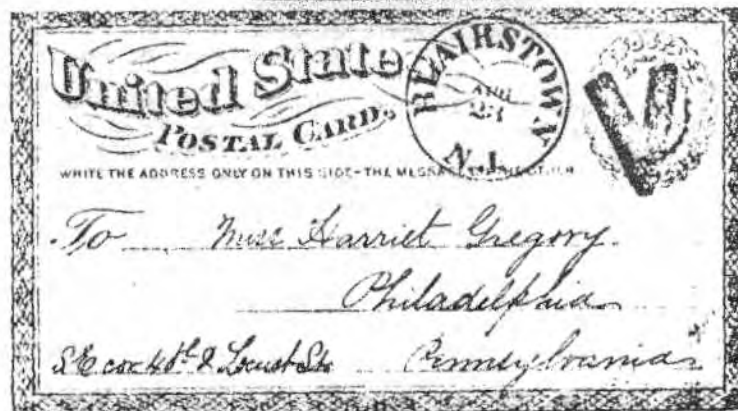 United States
POSTAL CARD.
BLAIRSTOWN
AUG
23
N.J.
WRITE THE ADDRESS ONLY ON THIS SIDE-THE MESSAGE ON THE OTHER
To Miss Harriet Gregory.
Philadelphia
S.E cor 4th & Locust Sts Pennsylvania